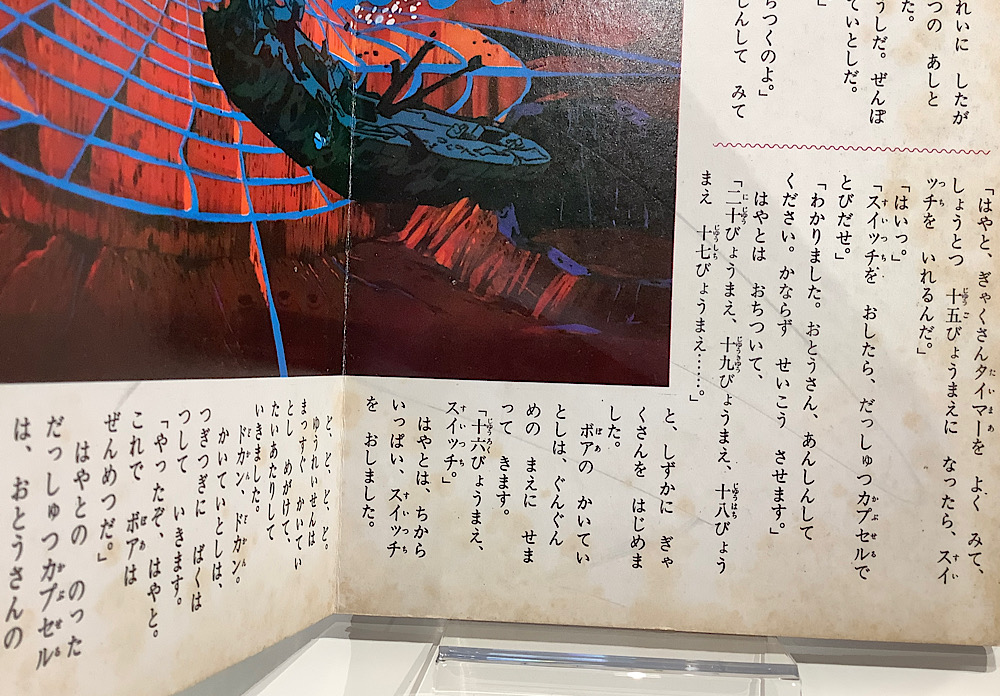 れいに したが
つの あしと
た。
うしだ。ぜんぽ
ていとしだ。
ちつくのよ。」
しんして みて
「はやと、ぎゃくさんタイマーを よく みて、
しょうとつ 十五びょうまえに なったら、スイ
ッチを いれるんだ。」
「はいっ。」
「スイッチを おしたら、だっしゅつカプセルで
とびだせ。」
「わかりました。おとうさん、あんしんして
ください。かならず せいこう させます。」
はやとは おちついて、
「二十びょうまえ、十九びょうまえ、十八びょう
まえ 十七びょうまえ……。」
と、しずかに ぎゃ
くさんを はじめま
した。
ボアの かいてい
としは、ぐんぐん
めの まえに せま
って きます。
「十六びょうまえ、
スイッチ。」
はやとは、ちから
いっぱい、スイッチ
を おしました。
ど、ど、ど、ど。
ゆうれいせんは
まっすぐ かいてい
とし めがけて、
たいあたりして
いきました。
ドカン、ドカン。
かいていとしは、
つぎつぎに ばくは
つして いきます。
「やったぞ、はやと。
これで ボアは
ぜんめつだ。」
はやとの のった
だっしゅつカプセル
は、おとうさんの